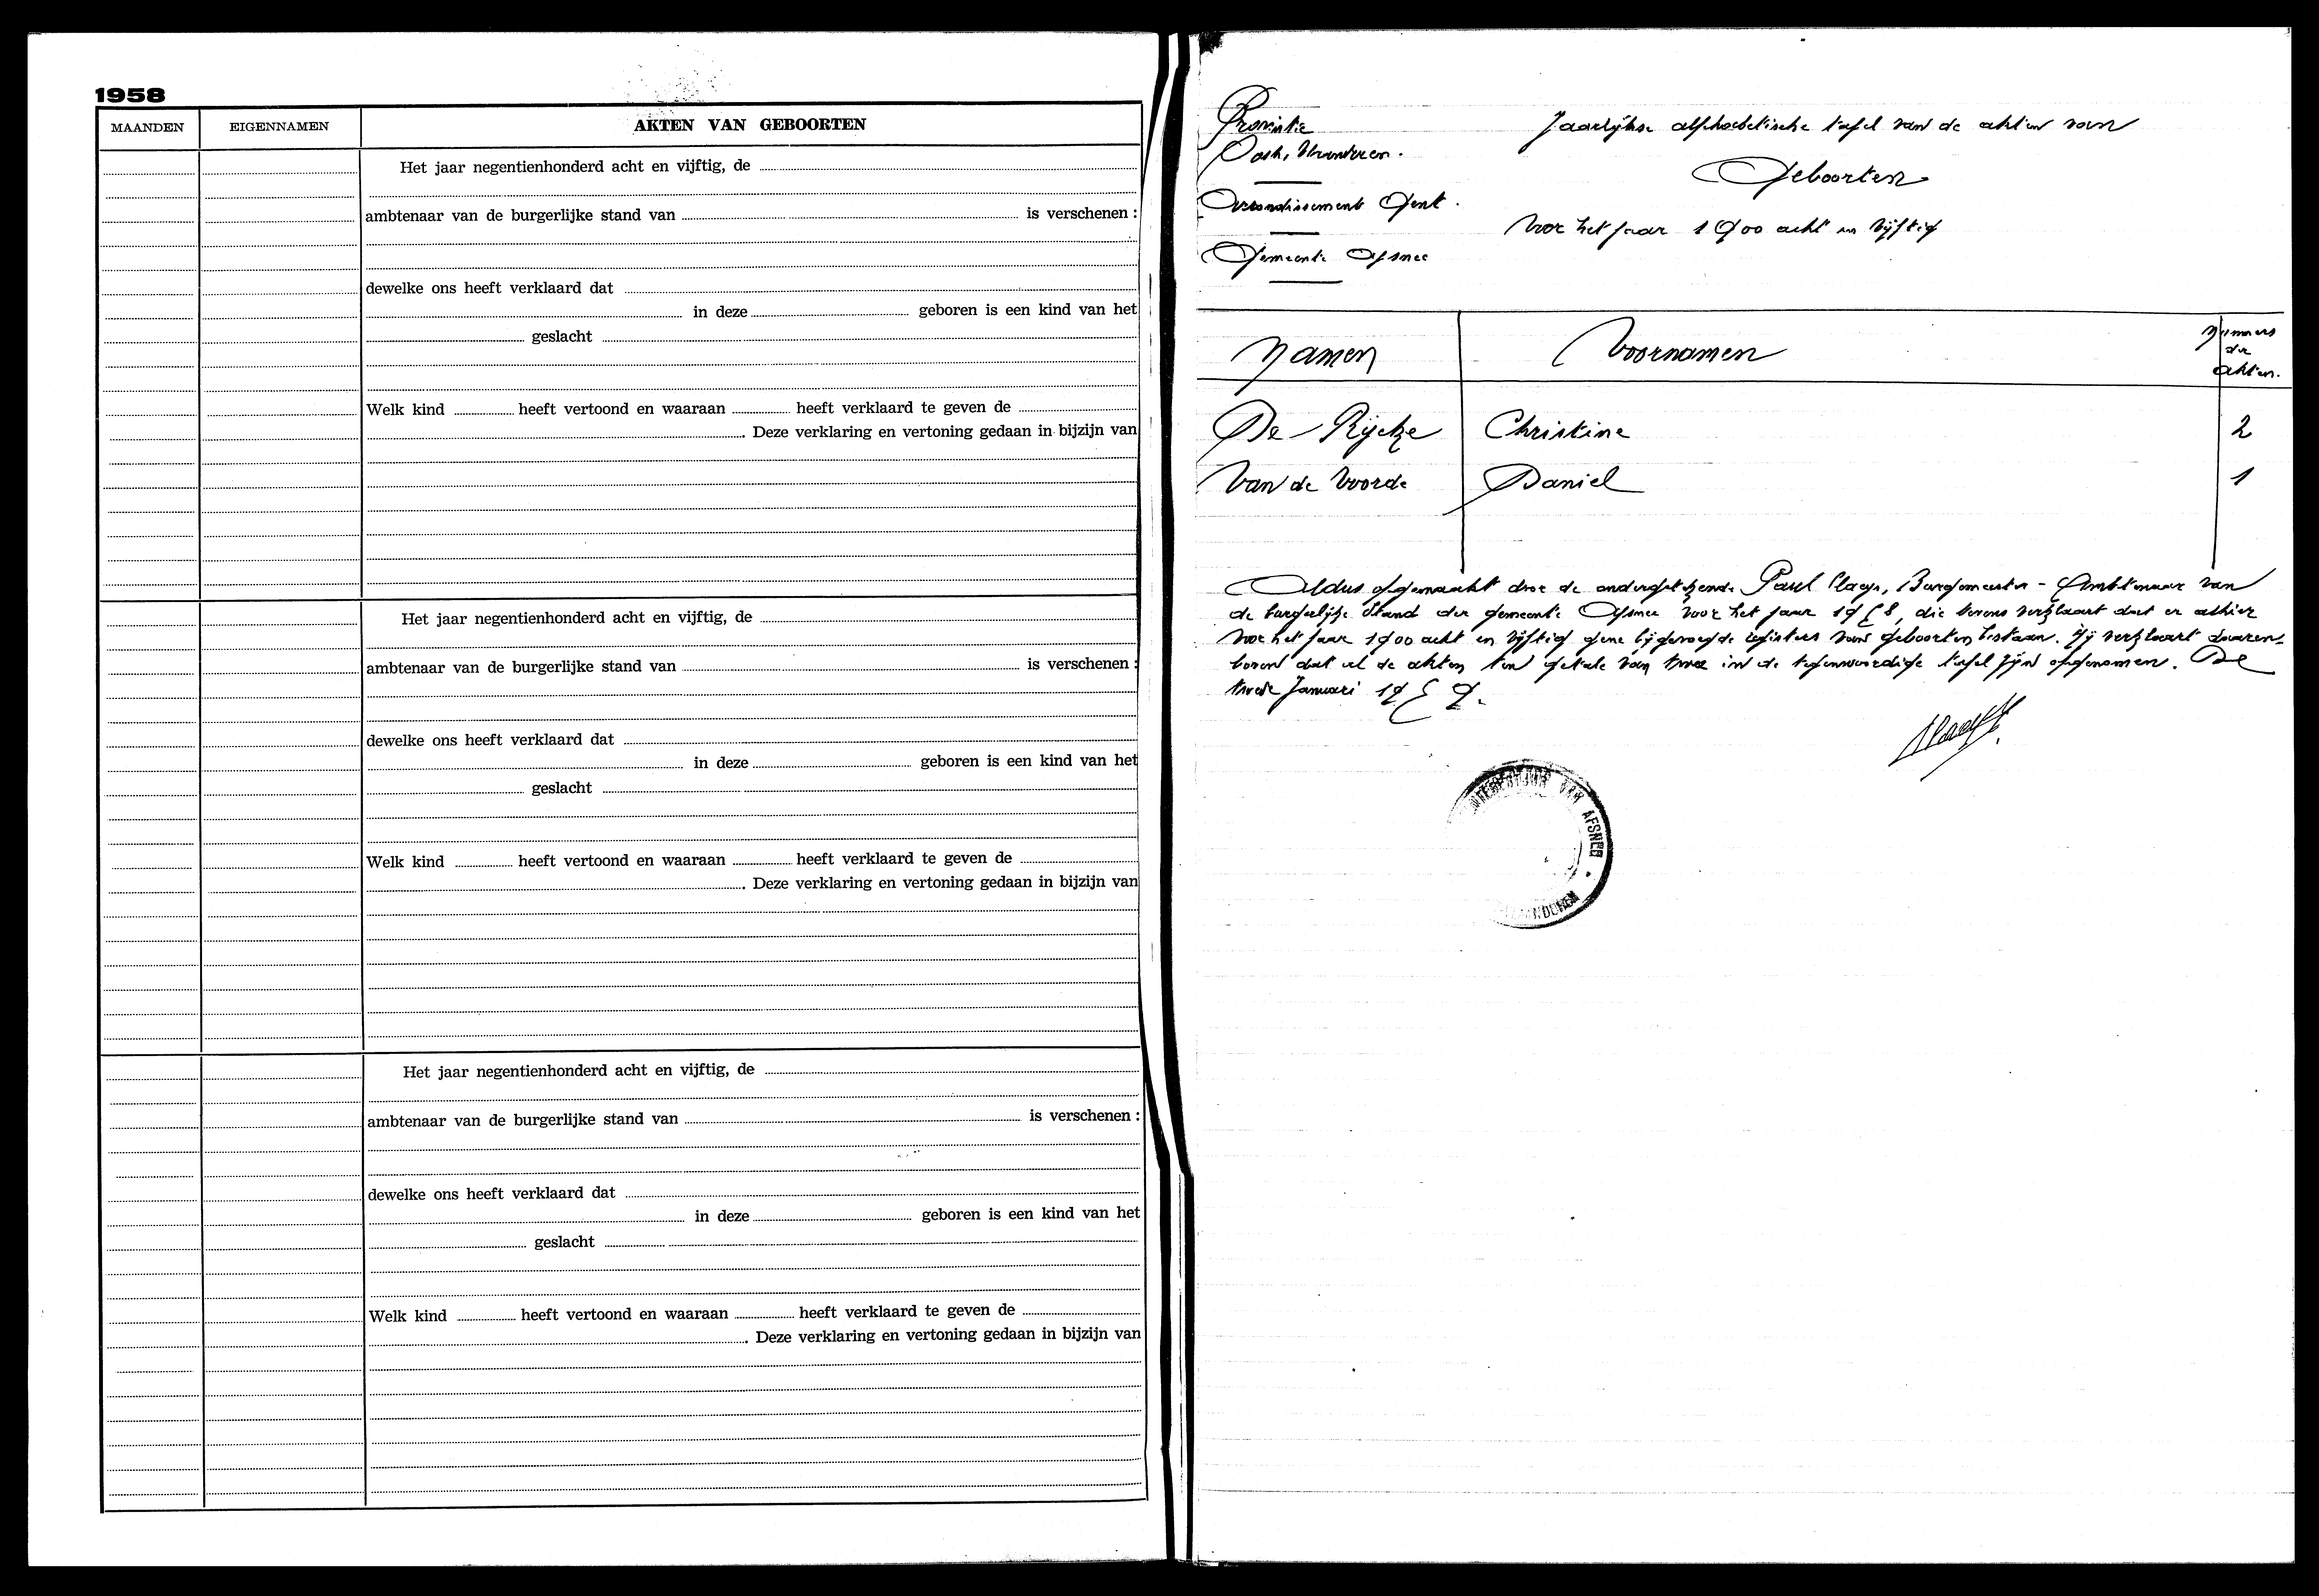 1958
MAANDEN EIGENNAMEN AKTEN VAN GEBOORTEN
Het jaar negentienhonderd acht en vijftig, de
ambtenaar van de burgerlijke stand van is verschenen :
dewelke ons heeft verklaard dat
in deze geboren is een kind van het
geslacht
Welk kind heeft vertoond en waaraan heeft verklaard te geven de
. Deze verklaring en vertoning gedaan in bijzijn van
Het jaar negentienhonderd acht en vijftig, de
ambtenaar van de burgerlijke stand van is verschenen :
dewelke ons heeft verklaard dat
in deze geboren is een kind van het
geslacht
Welk kind heeft vertoond en waaraan heeft verklaard te geven de
. Deze verklaring en vertoning gedaan in bijzijn van
Het jaar negentienhonderd acht en vijftig, de
ambtenaar van de burgerlijke stand van is verschenen :
dewelke ons heeft verklaard dat
in deze geboren is een kind van het
geslacht
Welk kind heeft vertoond en waaraan heeft verklaard te geven de
. Deze verklaring en vertoning gedaan in bijzijn van
Provintie
Oost, Vlaanderen.
Arrondissement Gent.
Gemeente Afsnee
Jaarlijkse alphabetische tafel van de akten van
Geboorten
Voor het jaar 1900 acht en vijftig
Namen Voornamen Nummers
der
akten.
De Rijcke Christine 2
Van de Voorde Daniel 1
Aldus opgemaakt door de ondergetekende Paul Claeys, Burgemeester - Ambtenaar van
de burgerlijke Stand der gemeente Afsnee voor het jaar 1958, die tevens verklaart dat er alhier
voor het jaar 1900 acht en vijftig gene bijgevoegde registers van geboorten bestaan. Hij verklaart daaren-
boven dat al de akten ten getale van twee in de tegenwoordige tafel zijn opgenomen. De
twede Januari 1959.
VAN AFSNEE